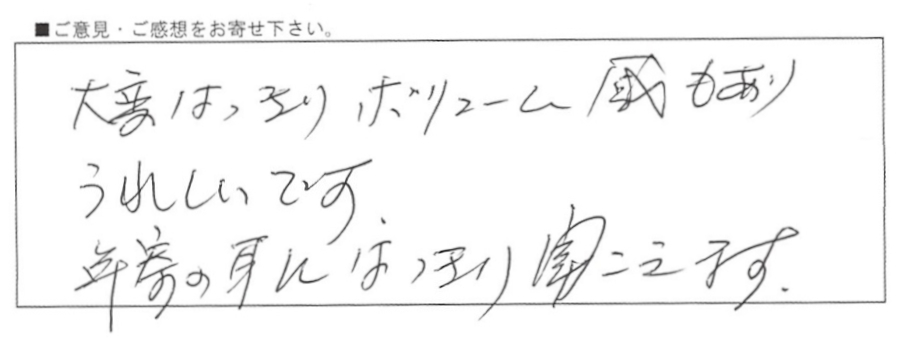 ■ご意見・ご感想をお寄せ下さい。
大変はっきりボリューム感もあり
うれしいです。
年寄の耳にはっきり聞こえます。